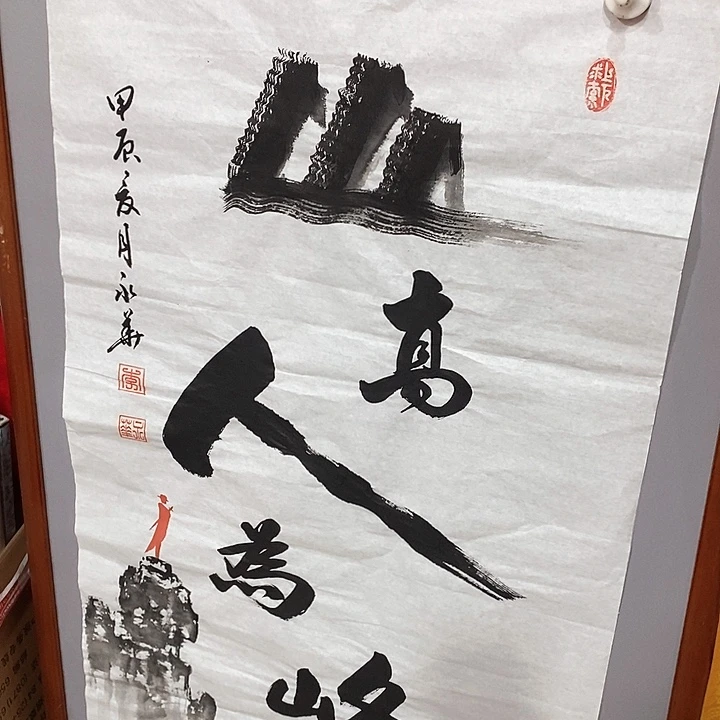 山高人為峰
甲辰夏月永華